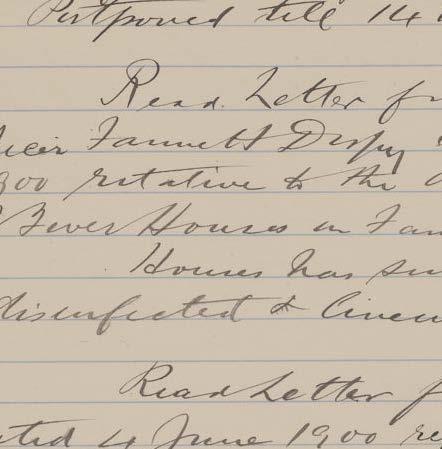 Postponed till 14
Read Letter fr
icer Fannett Dispy
900 rетative to the
Fever Houses in Fan
Houses has
disinfected &
Read Letter f
ated 4 June 1900 re